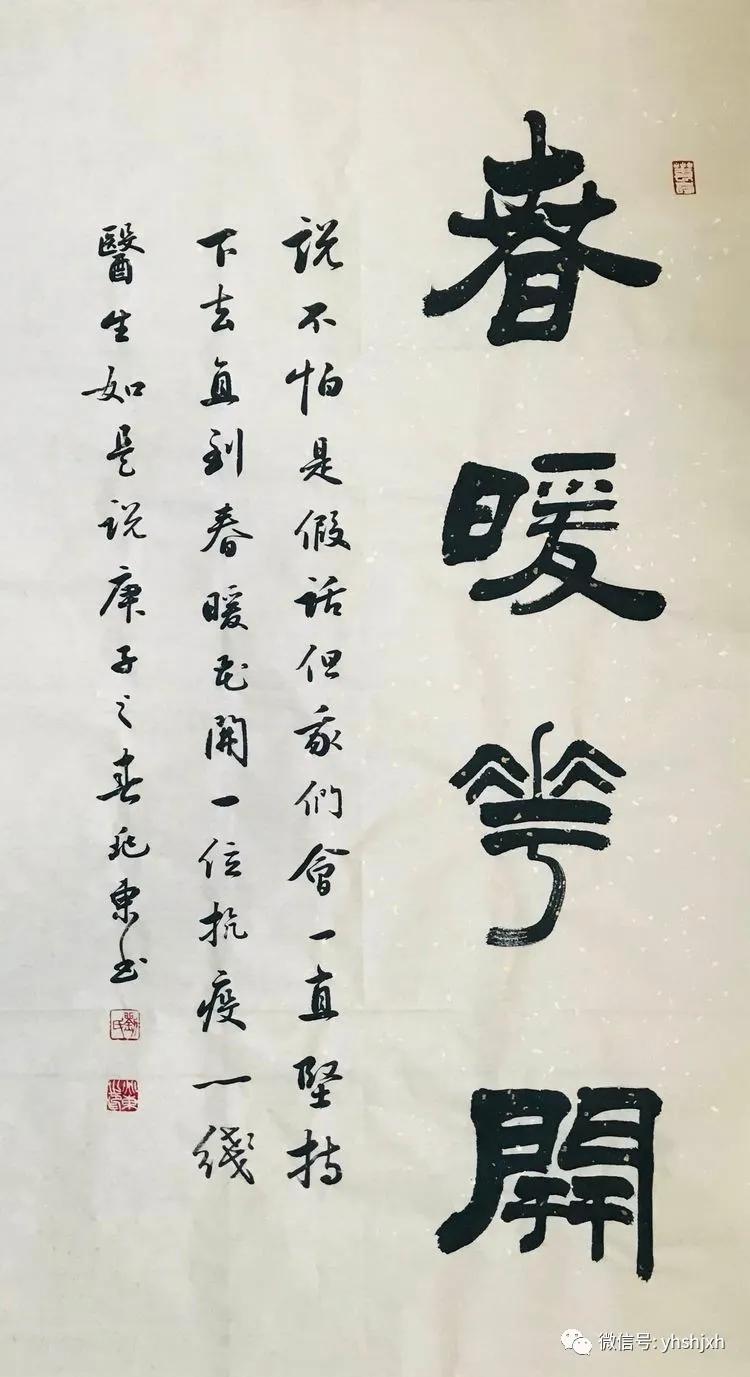 春暖華開
説不怕是假話但我們會一直堅持
下去直到春暖花開一位抗疫一綫
醫生如是説庚子之春東書
劉氏
微信号: yhshjxh